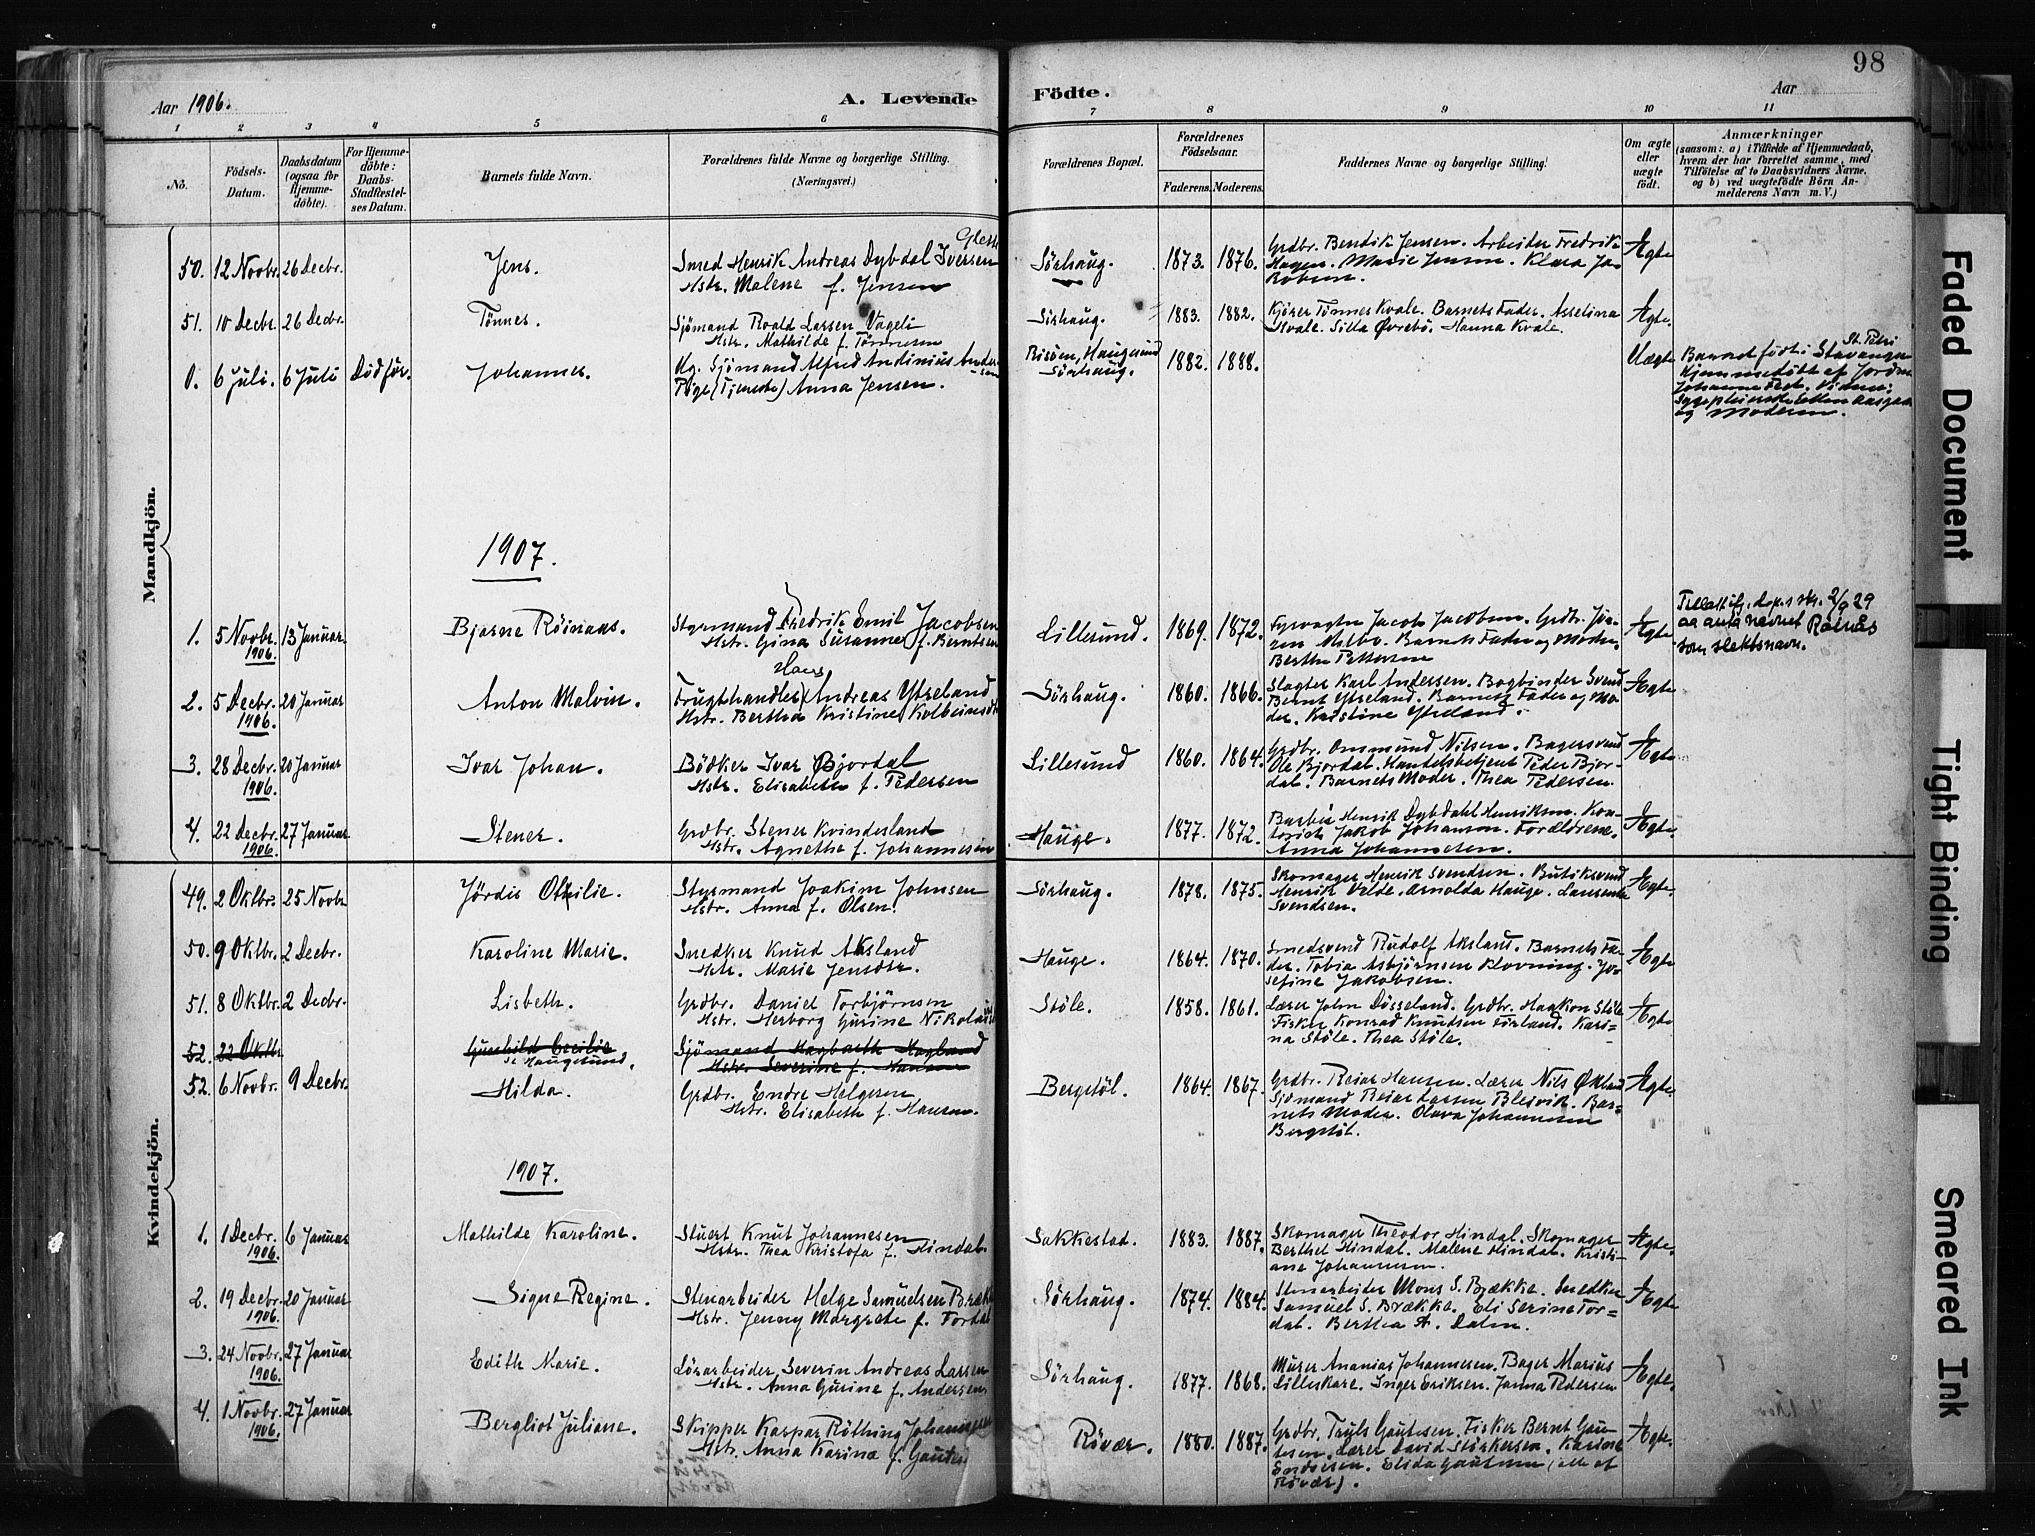 98
Aar 1906.
A. Levende
Födte.
Aar
1 2 3 4 5 6 7 8 9 10 11
No.
Födsels-
Datum.
Daabsdatum
(ogsaa for
Hjemme-
döbte).
For Hjemme-
döbte:
Daabs-
Stadfæstel-
ses Datum.
Barnets fulde Navn.
Forældrenes fulde Navne og borgerlige Stilling.
(Næringsvei.)
Forældrenes Bopæl.
Forældrenes
Födselsaar.
Faderens. Moderens.
Faddernes Navne og borgerlige Stilling.
Om ægte
eller
uægte
födt.
Anmærkninger
(saasom: a) i Tilfælde af Hjemmedaab,
hvem der har forrettet samme, med
Tilföielse af to Daabsvidners Navne,
og b) ved uægtefödte Börn An-
melderens Navn m. V.)
Mandkjön.
50. 12 Novbr. 26 Decbr. Jens. Smed Henrik Andreas Dybdal Iversen
Hstr. Malene f. Jensen
Sörhaug. 1873. 1876. Grdbr. Bendik Jensen. Arbeider Fredrik
Hagen. Marie Jensen. Klara Ja-
kobsen.
Ægte
51. 10 Decbr. 26 Decbr. Tönnes. Sjömand Roald Larsen Vageli
Hstr. Mathilde f. Tönnesen
Sörhaug. 1883. 1882. Kjörer Tönnes Kvale. Barnets Fader. Asselina
Kvale. Silla Øvrebö. Hanna Kvale.
Ægte.
0. 6 Juli. 6 Juli Död för. Johannes. Ug. Sjömand Alfred Andinius Ander-
sen
Pige (Tjeneste) Anna Jensen.
Risöen, Haugesund
Sörhaug. 1882. 1888. Uægte
St. Petri
Barnet födt i Stavanger
Hjemmedöbt af Jordm.
og Moderen.
1907.
1. 5 Novbr. 1906. 13 Januar. Bjarne Röinaas. Styrmand Fredrik Emil Jacobsen
Hstr. Gina Susanne f. Berntsen
Lillesund. 1869. 1872. Fyrvogter Jacob Jacobsen. Grdbr. Jör-
gen Melbo. Barnets Fader og Moder.
Berthe Pettersen
Ægte
som slektsnavn.
2. 5 Decbr. 1906. 20 Januar Anton Malvin. Hans
Frugthandler Andreas Ytreland
Hstr. Bertha Kristine Kolbeinsdtr
Sörhaug. 1860. 1866. Slagter Karl Andersen. Bogbinder Svend
Bernt Ytreland. Barnets Fader og Mo-
der. Kristine Ytreland.
Ægte
3. 28 Decbr. 1906. 20 Januar Ivar Johan. Bödker Ivar Bjordal
Hstr. Elisabeth f. Pedersen
Lillesund 1860. 1864. Grdbr. Ommund Nilsen. Bagersvend
Ole Bjordal. Handelsbetjent Peder Bjor-
dal. Barnets Moder. Thea Pedersen.
Ægte
4. 22 Decbr. 1906. 27 Januar Stener. Grdbr. Stener Kvindesland
Hstr. Agnethe f. Johannesen
Hauge. 1877. 1872. Barber Henrik Dybdahl Henriksen. Kon-
torist Jakob Johansen. Forældrene.
Anna Johannesen.
Ægte.
Kvindekjön.
49. 2 Oktbr. 25 Novbr Jördis Othilie. Styrmand Joakim Johnsen
Hstr. Anna f. Olsen.
Sörhaug. 1878. 1875. Skomager Henrik Svendsen. Butiksvend
Henrik Velde. Arnolda Hauge. Laurense
Svendsen.
Ægte.
50. 9 Oktbr. 2 Decbr. Karoline Marie. Snedker Knud Aksland
Hstr. Marie Jensdtr.
Hauge. 1864. 1870. Smedsvend Rudolf Aksland. Barnets Fa-
der. Tobia Asbjörnsen Klovning. Jo-
sefine Jakobsen.
Ægte
51. 8 Oktbr. 2 Decbr. Lisbeth. Grdbr. Daniel Torbjörnsen
Hstr. Herborg Gurine Nikolai
Stöle. 1858. 1861. Lærer John Dösseland. Grdbr. Haakon Stöle
Fisker Konrad Knudsen Förland. Kari-
na Stöle. Thea Stöle.
Ægte
52. 22 Oktbr Gunhild Cecilie
i Haugesund.
Sjömand Hagbarth Hagland
Hstr. Severine f. Hansen
52. 6 Novbr. 9 Decbr. Hilda. Grdbr. Endre Helgesen
Hstr. Elisabeth f. Hansen.
Bergstöl. 1864. 1867. Grdbr. Reiar Hansen. Lærer Nils Økland
Sjömand Reiar Larsen Bleivik. Bar-
nets Moder. Olava Johannesen
Bergstöl.
Ægte.
1907.
1. 1 Decbr. 1906. 6 Januar Mathilde Karoline. Stuert Knut Johannesen
Hstr. Thea Kristofa f. Hindal.
Sakkestad. 1883. 1887. Skomager Theodor Hindal. Skomager
Berthel Hindal. Malene Hindal. Kristi-
ane Johannesen.
Ægte.
2. 19 Decbr. 1906. 20 Januar Signe Regine. Stenarbeider Helge Samuelsen Brække
Hstr. Jenny Margrete f. Tordal
Sörhaug. 1874. 1884. Stenarbeider Mons S. Brække. Snedker
Samuel S. Brække. Eli Serine Tor-
dal. Berthea A. Dalen.
Ægte
3. 24 Novbr. 1906. 27 Januar Edith Marie. Lösarbeider Severin Andreas Larsen
Hstr. Anna Gurine f. Andersen
Sörhaug. 1877. 1868. Murer Ananias Johannesen. Bager Marius
Lilleskare. Inger Eriksen. Janna Pedersen
Ægte.
4. 1 Novbr. 1906. 27 Januar Bergliot Juliane. Skipper Kaspar Röthing Johannesen
Hstr. Anna Karina f. Gautesen
Rövær. 1880. 1887. Grdbr. Truls Gautesen. Fisker Bernt Gau-
tesen. Lærer David Störkersen. Karine
Endresen. Elida Gautesen (alle af
Rövær).
Ægte.
Faded Document
Tight Binding
Smeared Ink